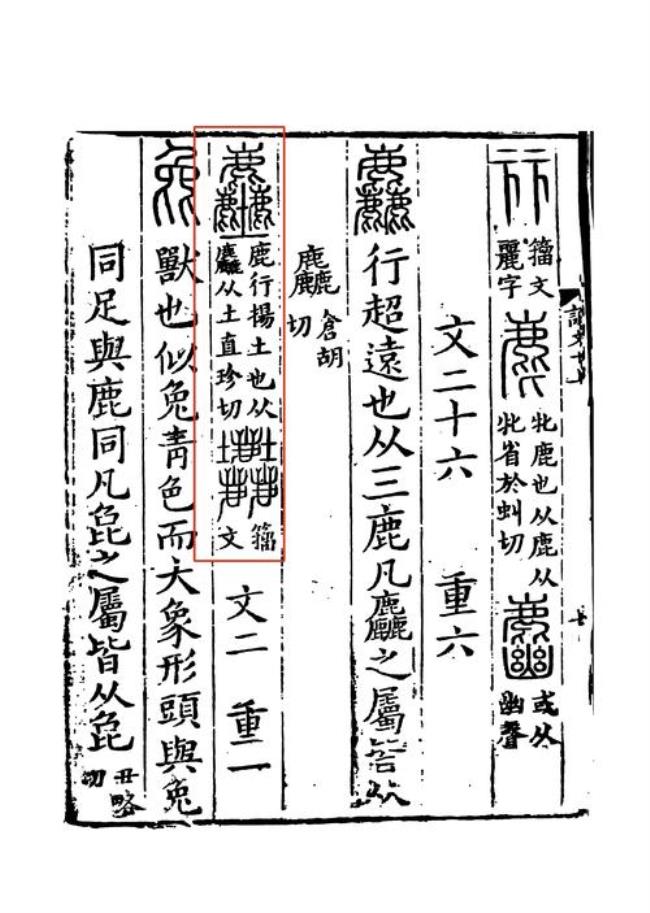 丽 籀文麗字 麀 牝鹿也从鹿从牝省於虯切 或从幽聲
文二十六 重六
麤 行超遠也从三鹿凡麤之屬皆从
麤 倉胡切
鹿行揚土也从麤从土直珍切 籀文 文二 重一
㲋 獸也似兔青色而大象形頭與兔
同足與鹿同凡㲋之屬皆从㲋 丑略切